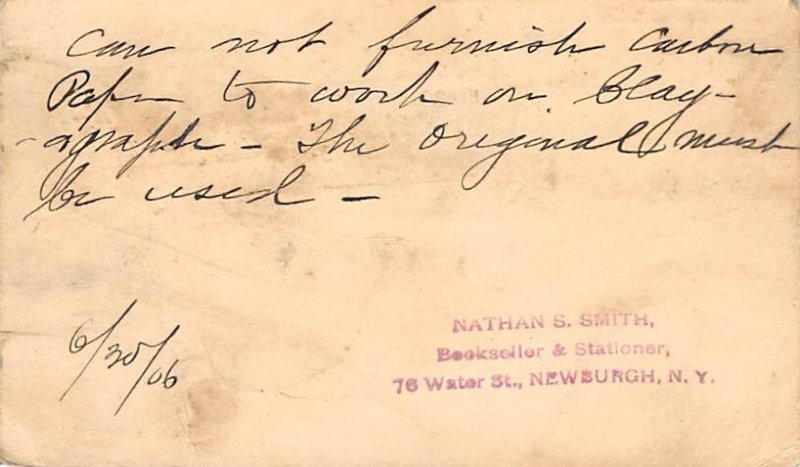 Can not furnish Carbon
Paper to work on Clay-
-agraph - The Original must
be used -
6/30/06
NATHAN S. SMITH,
Bookseller & Stationer,
76 Water St., NEWBURGH, N. Y.